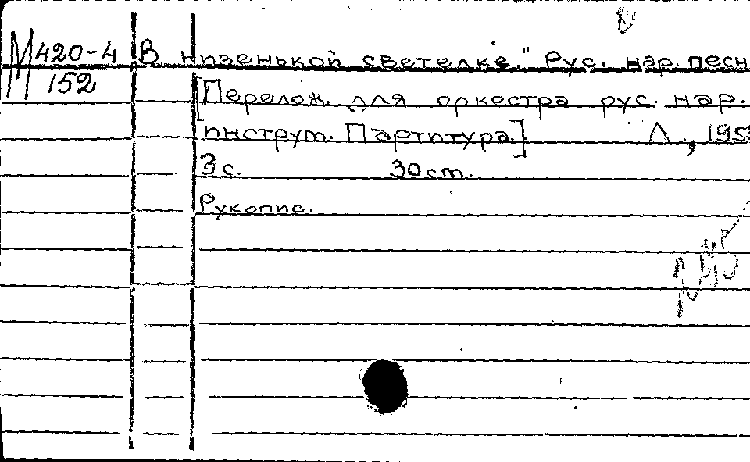 М 420-4 В низенькой светелке." Рус. нар. песн
152 [Перелож. для оркестра рус. нар.
инструм. Партитура.] Л., 195
3 с. 30 см.
Рукопис.